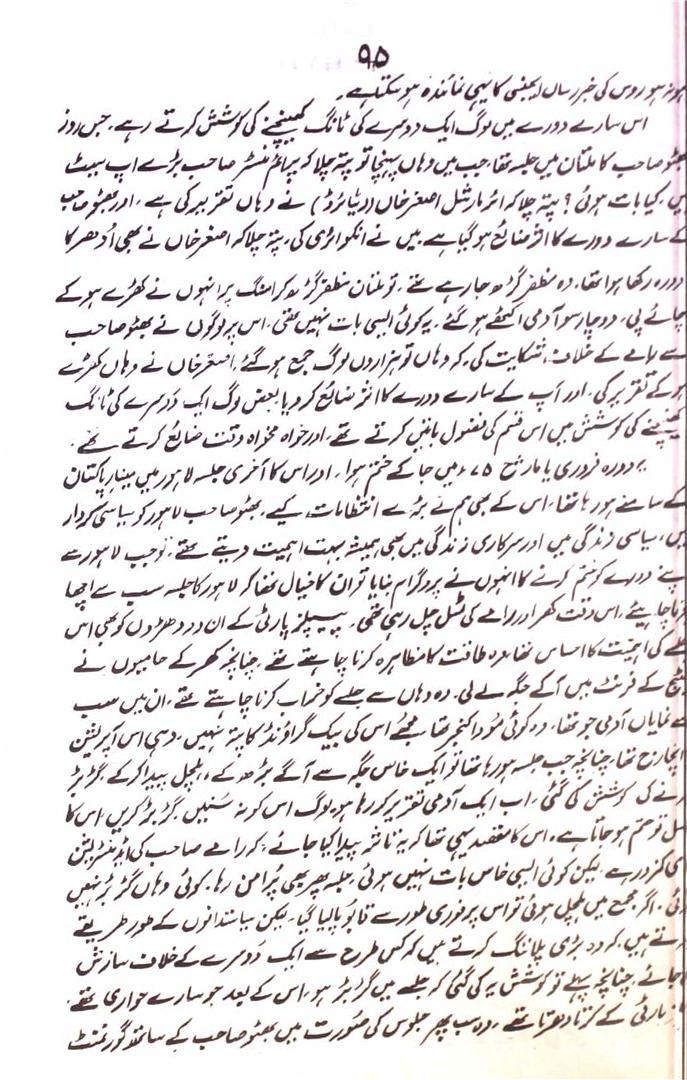 ۹۵
ہو نہ ہو روس کی خبر رساں ایجنسی کا یہی نمائندہ ہو سکتا ہے۔
اس سارے دورے میں لوگ ایک دوسرے کی ٹانگ کھینچنے کی کوشش کرتے رہے۔ جس روز
بھٹو صاحب کا ملتان میں جلسہ تھا، جب میں وہاں پہنچا تو پتہ چلا کہ پرائم منسٹر صاحب بڑے اپ سیٹ
ہیں۔ کیا بات ہوئی؟ پتہ چلا کہ ائر مارشل اصغر خاں (ریٹائرڈ) نے وہاں تقریر کی ہے۔ اور بھٹو صاحب
کے سارے دورے کا اثر ضائع ہو گیا ہے۔ میں نے انکوائری کی، پتہ چلا کہ اصغر خاں نے بھی اُدھر کا
دورہ رکھا ہوا تھا، وہ مظفر گڑھ جا رہے تھے، تو ملتان مظفر گڑھ کراسنگ پر انہوں نے کھڑے ہو کے
چائے پی، دو چار سو آدمی اکٹھے ہو گئے۔ یہ کوئی ایسی بات نہیں تھی، اس پر لوگوں نے بھٹو صاحب
سے رامے کے خلاف شکایت کی، کہ وہاں تو ہزاروں لوگ جمع ہو گئے، اصغر خاں نے وہاں کھڑے
ہو کے تقریر کی، اور آپ کے سارے دورے کا اثر ضائع کر دیا، بعض لوگ ایک دوسرے کی ٹانگ
کھینچنے کی کوشش میں اس قسم کی فضول باتیں کرتے تھے، اور خواہ مخواہ وقت ضائع کرتے تھے۔
یہ دورہ فروری یا مارچ ۷۵ء میں جا کے ختم ہوا۔ اور اس کا آخری جلسہ لاہور میں مینار پاکستان
کے سامنے ہو رہا تھا، اس کے بھی ہم نے بڑے انتظامات کیے، بھٹو صاحب لاہور کو سیاسی کردار
میں، سیاسی زندگی میں اور سرکاری زندگی میں بھی ہمیشہ بہت اہمیت دیتے تھے، تو جب لاہور سے
اپنے دورے کو ختم کرنے کا انہوں نے پروگرام بنایا تو ان کا خیال تھا کہ لاہور کا جلسہ سب سے اچھا
ہونا چاہیئے، اس وقت کھر اور رامے کی ٹسل چل رہی تھی۔ پیپلز پارٹی کے ان دو دھڑوں کو بھی اس
جلسے کی اہمیت کا احساس تھا، وہ طاقت کا مظاہرہ کرنا چاہتے تھے، چنانچہ کھر کے حامیوں نے
سٹیج کے فرنٹ میں آ کے جگہ لے لی۔ وہ وہاں سے جلسے کو خراب کرنا چاہتے تھے، ان میں سب
سے نمایاں آدمی جو تھا، وہ کوئی مُودا کنجر تھا مجھے اس کی بیک گراؤنڈ کا پتہ نہیں، وہی اس آپریشن
کا انچارج تھا، چنانچہ جب جلسہ ہو رہا تھا تو ایک خاص جگہ سے آگے بڑھ کے، ہلچل پیدا کر کے، گڑ بڑ
کرنے کی کوشش کی گئی، اب ایک آدمی تقریر کر رہا ہو، لوگ اس کو نہ سُنیں گڑ بڑ کریں، اس کا
تو ختم ہو جاتا ہے، اس کا مقصد یہی تھا کہ یہ تاثر پیدا کیا جائے، کہ رامے صاحب کی ایڈمنسٹریشن
بڑی کمزور ہے۔ لیکن کوئی ایسی خاص بات نہیں ہوئی، جلسہ پھر بھی پُرامن رہا، کوئی وہاں گڑ بڑ نہیں
ہوئی، اگر مجمع میں ہلچل ہوئی تو اس پر فوری طور سے قابو پا لیا گیا، لیکن سیاستدانوں کے طور طریقے
ہوتے ہیں، کہ وہ بڑی پلاننگ کرتے ہیں کہ کس طرح سے ایک دوسرے کے خلاف سازش
کی جائے، چنانچہ پہلے تو کوشش یہ کی گئی کہ جلسے میں گڑ بڑ ہو، اس کے بعد جو سارے حواری تھے،
پارٹی کے کرتا دھرتا تھے، وہ سب پھر جلوس کی صورت میں بھٹو صاحب کے ساتھ گورنمنٹ